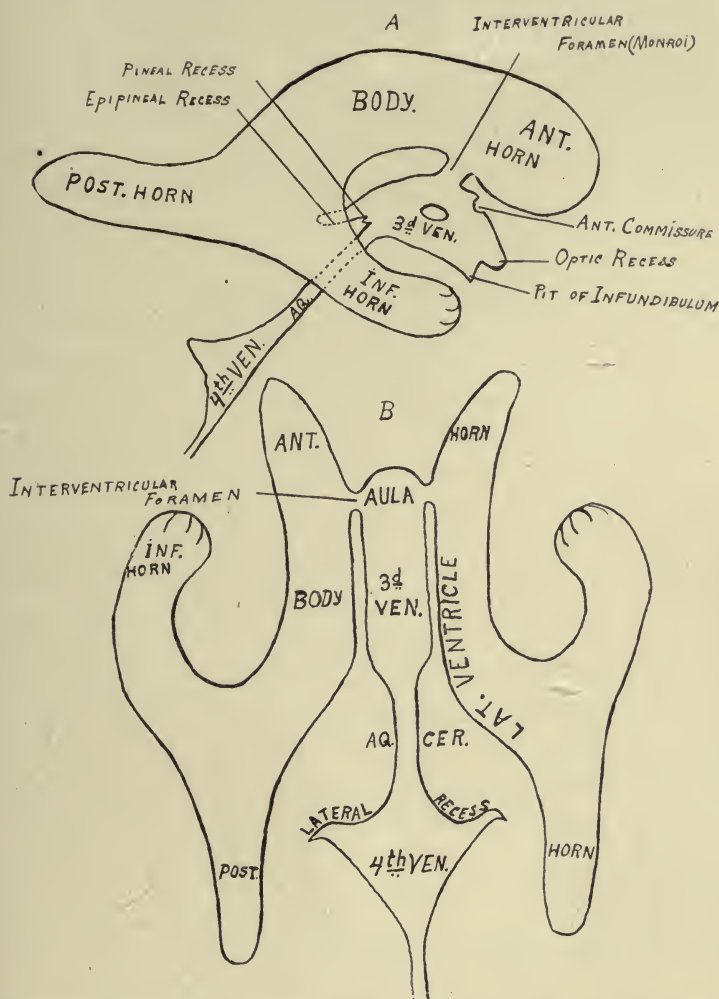 A
INTERVENTRICULAR
FORAMEN (MONROI)
PINEAL RECESS
EPIPINEAL RECESS
BODY.
ANT.
HORN
POST. HORN
3d VEN.
ANT. COMMISSURE
OPTIC RECESS
PIT OF INFUNDIBULUM
INF.
HORN
AQ.
4th VEN.
B
ANT.
HORN
INTERVENTRICULAR
FORAMEN
AULA
INF.
HORN
3d
VEN.
BODY
LAT. VENTRICLE
AQ. CER.
LATERAL RECESS
4th VEN.
POST.
HORN